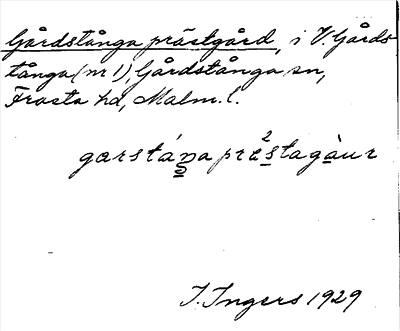 Gårdstånga prästgård, i V. Gårds-
tånga (nr 1), Gårdstånga sn,
Frosta hd, Malm. l.
garstáŋa prę²stagàur
I. Ingers 1929